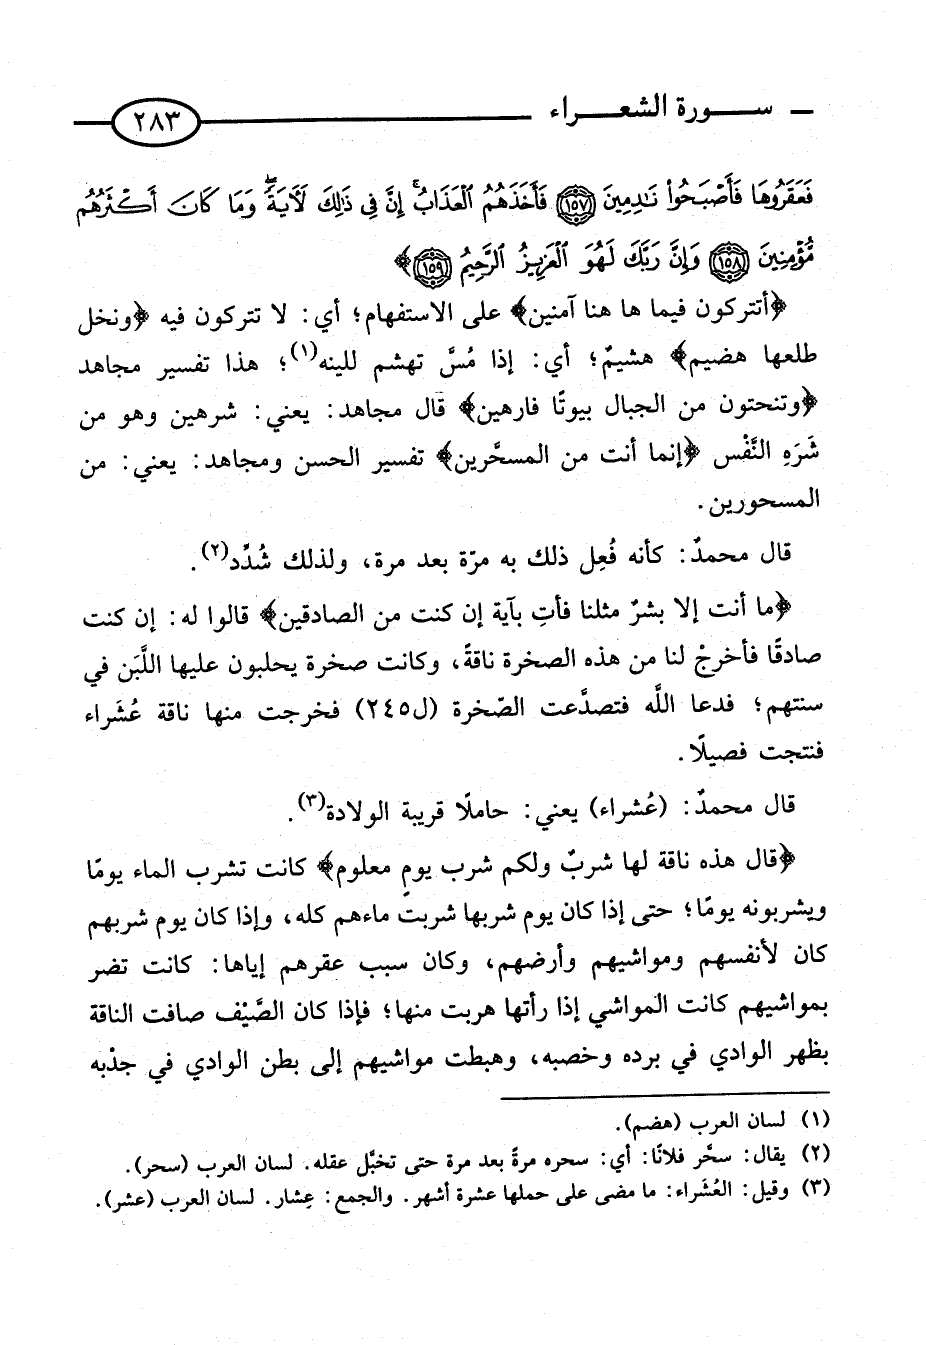 سورة الشعراء ٢٨٣
فَعَقَرُوهَا فَأَصْبَحُوا۟ نَـٰدِمِينَ ﴿١٥٧﴾ فَأَخَذَهُمُ ٱلْعَذَابُ ۗ إِنَّ فِى ذَٰلِكَ لَـَٔايَةً ۖ وَمَا كَانَ أَكْثَرُهُم
مُّؤْمِنِينَ ﴿١٥٨﴾ وَإِنَّ رَبَّكَ لَهُوَ ٱلْعَزِيزُ ٱلرَّحِيمُ ﴿١٥٩﴾﴾
﴿أتتركون فيما ها هنا آمنين﴾ على الاستفهام؛ أي: لا تتركون فيه ﴿ونخل
طلعها هضيم﴾ هشيمٌ؛ أي: إذا مُسَّ تهشم للينه(١)؛ هذا تفسير مجاهد
﴿وتنحتون من الجبال بيوتًا فارهين﴾ قال مجاهد: يعني: شرهين وهو من
شَرَهِ النَّفْس ﴿إنما أنت من المسحَّرين﴾ تفسير الحسن ومجاهد: يعني: من
المسحورين.
قال محمدٌ: كأنه فُعِل ذلك به مرّة بعد مرة، ولذلك شُدِّد(٢).
﴿ما أنت إلا بشرٌ مثلنا فأتِ بآية إن كنت من الصادقين﴾ قالوا له: إن كنت
صادقًا فأخرجْ لنا من هذه الصخرة ناقةً، وكانت صخرة يحلبون عليها اللَّبَن في
سنتهم؛ فدعا اللَّه فتصدَّعت الصّخرة (ل٢٤٥) فخرجت منها ناقة عُشَراء
فنتجت فصيلًا.
قال محمدٌ: (عُشراء) يعني: حاملًا قريبة الولادة(٣).
﴿قال هذه ناقة لها شربٌ ولكم شرب يومٍ معلوم﴾ كانت تشرب الماء يومًا
ويشربونه يومًا؛ حتى إذا كان يوم شربها شربت ماءهم كله، وإذا كان يوم شربهم
كان لأنفسهم ومواشيهم وأرضهم، وكان سبب عقرهم إياها: كانت تضر
بمواشيهم كانت المواشي إذا رأتها هربت منها؛ فإذا كان الصَّيْف صافت الناقة
بظهر الوادي في برده وخصبه، وهبطت مواشيهم إلى بطن الوادي في جدْبه
(١) لسان العرب (هضم).
(٢) يقال: سحَّر فلانًا: أي: سحره مرةً بعد مرة حتى تخبَّل عقله. لسان العرب (سحر).
(٣) وقيل: العُشَراء: ما مضى على حملها عشرة أشهر. والجمع: عِشار. لسان العرب (عشر).